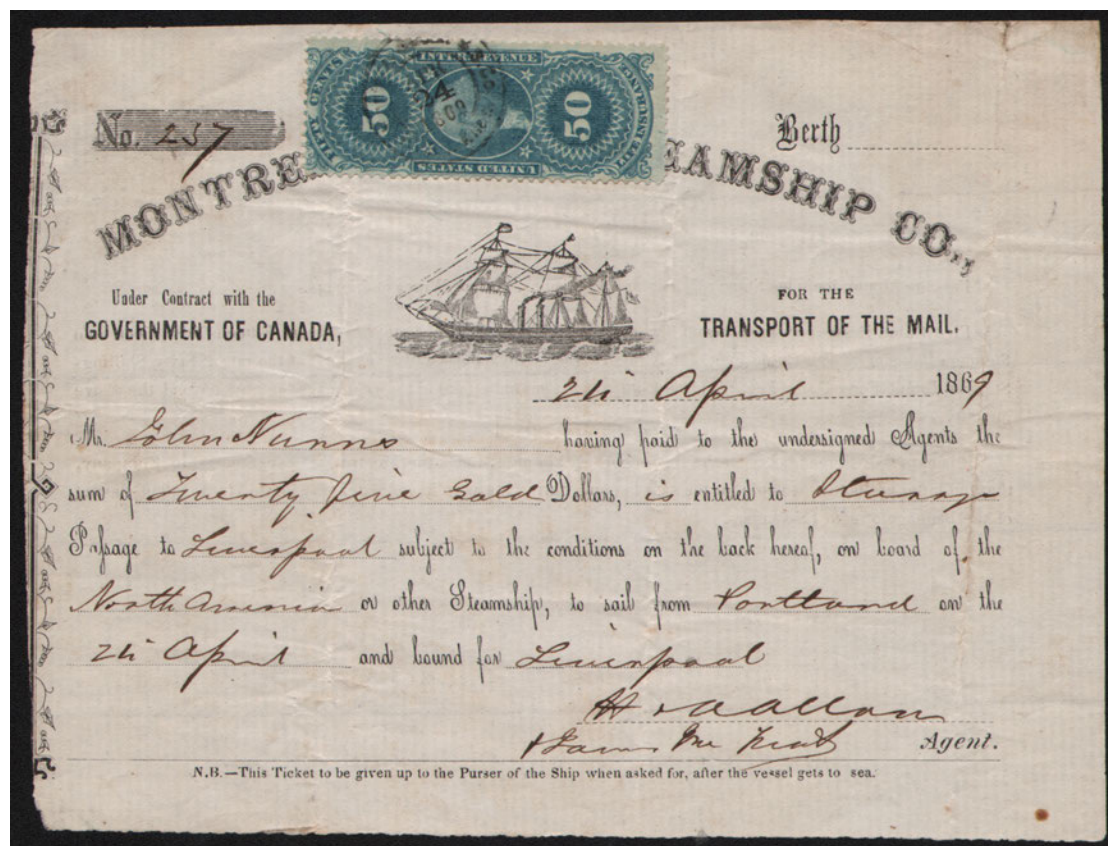 No. 257
Berth
INTER. REVENUE
FIFTY CENTS
50
50
UNITED STATES
MONTRE
EAMSHIP CO.,
Under Contract with the
GOVERNMENT OF CANADA,
FOR THE
TRANSPORT OF THE MAIL.
24 April 1869
Mr. John Nunns having paid to the undersigned Agents the
sum of Twenty five Gold Dollars, is entitled to Steerage
Passage to Liverpool subject to the conditions on the back hereof, on board of the
North American or other Steamship, to sail from Portland on the
24 April and bound for Liverpool
H & A Allan
Agent.
N.B.—This Ticket to be given up to the Purser of the Ship when asked for, after the vessel gets to sea.